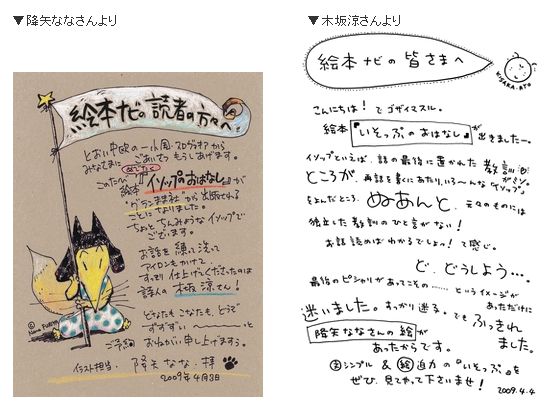 ▼降矢ななさんより
絵本ナビの読者の方々へ
とおい中欧の一小国・スロヴァキアから
みなさまに ごあいさつ もうしあげます。
このたび めでたく
絵本 "イソップのおはなし" が
"グランまま社" から 出版される
ことに なりました。
ちょと ちんみょうな イソップで
ございます。
お話を 練って 洗って
アイロンもかけて、
すっきり 仕上げてくださったのは
詩人の 木坂 涼さん!
どなたも こなたも、どうぞ
ずずずい〜〜〜っと
おねがい 申し上げまする。
イラスト担当 降矢 なな・拝
2009年4月3日
© Nana Furiya
▼木坂涼さんより
絵本ナビの 皆さまへ
KISAKA-RYO
こんにちは! で ゴザイマスル。
絵本 『いそっぷのおはなし』が 出きましたー。
イソップといえば、話の最後に置かれた 教訓がミソ。
ところが、再話を書くにあたり、いろ〜んな"イソップ"
をよんだところ、なぁんと、元々のものには
独立した 教訓の ひと言がない!
お話 読めば わかるでしょっ! て感じ。
ど、どうしよう…。
最後の ピシャリが あってこその…… というイメージが
あっただけに
迷いました。すっかり迷う。でも ふっきれ
ました。
降矢ななさんの 絵 が
あったからです。
文シンプル & 絵迫力 の 『いそっぷ』を
ぜひ、見てやって下さいませ!
2009.4.4